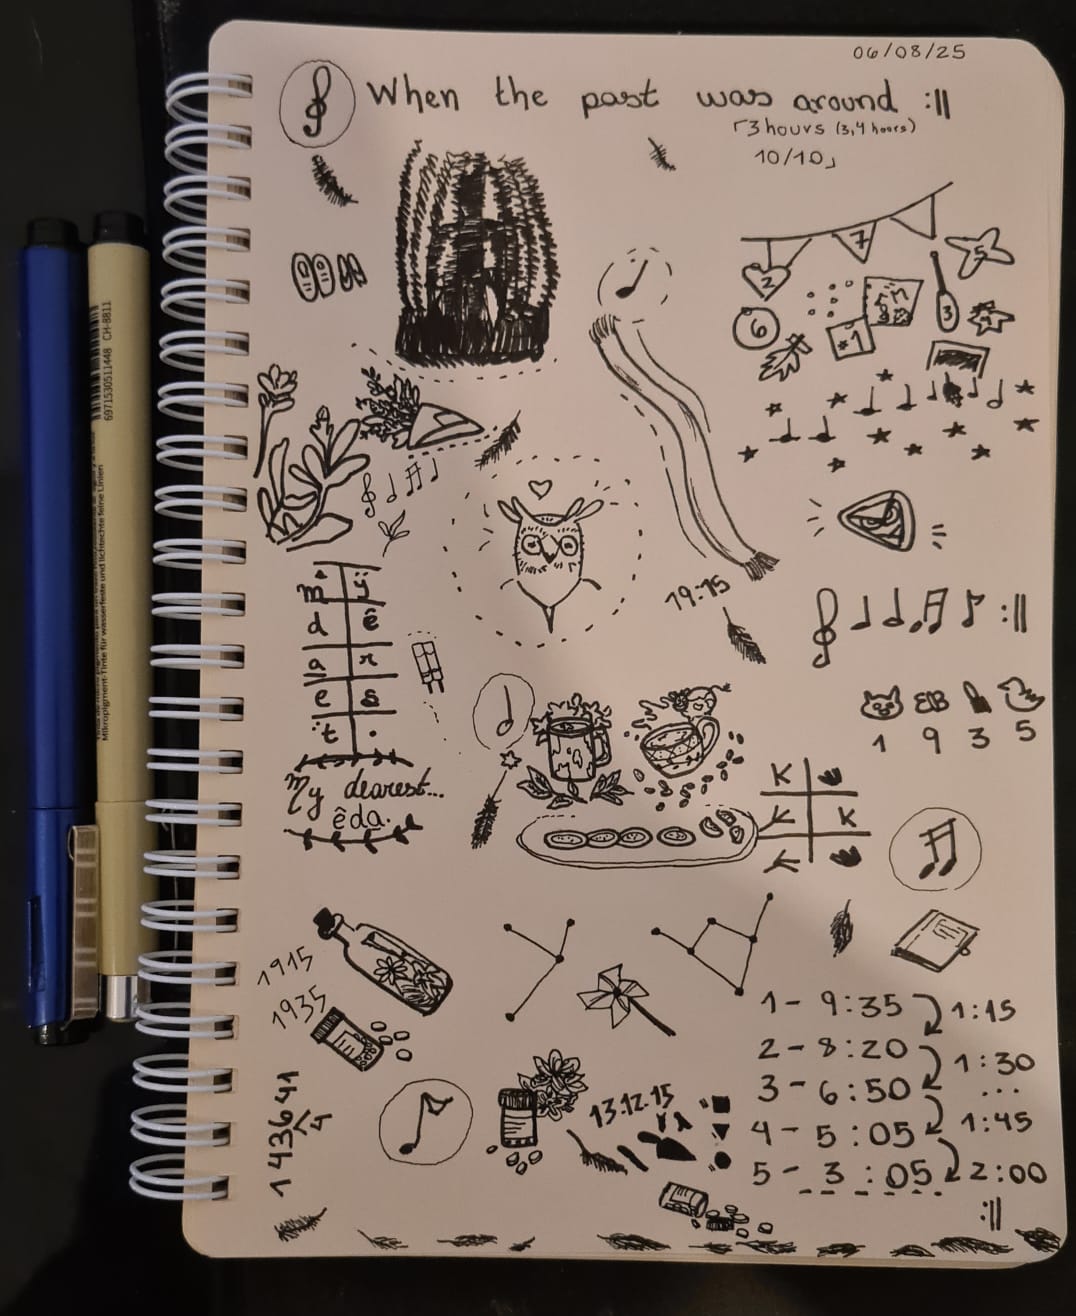 06/08/25
When the past was around :||
「3 hours (3,4 hours)
10/10」
7
2
5
3
6
4
*1
19:15
m̂ ÿ
d ê
a r
e s
ẗ .
My dearest...
êda.
1 9 3 5
K
K
1915
1935
1 - 9:35
1:15
2 - 8:20
1:30
3 - 6:50
...
4 - 5:05
1:45
5 - 3:05
2:00
:||
13.12.15
1 4 3 6 4 1
4
CH-8811
6971530511448